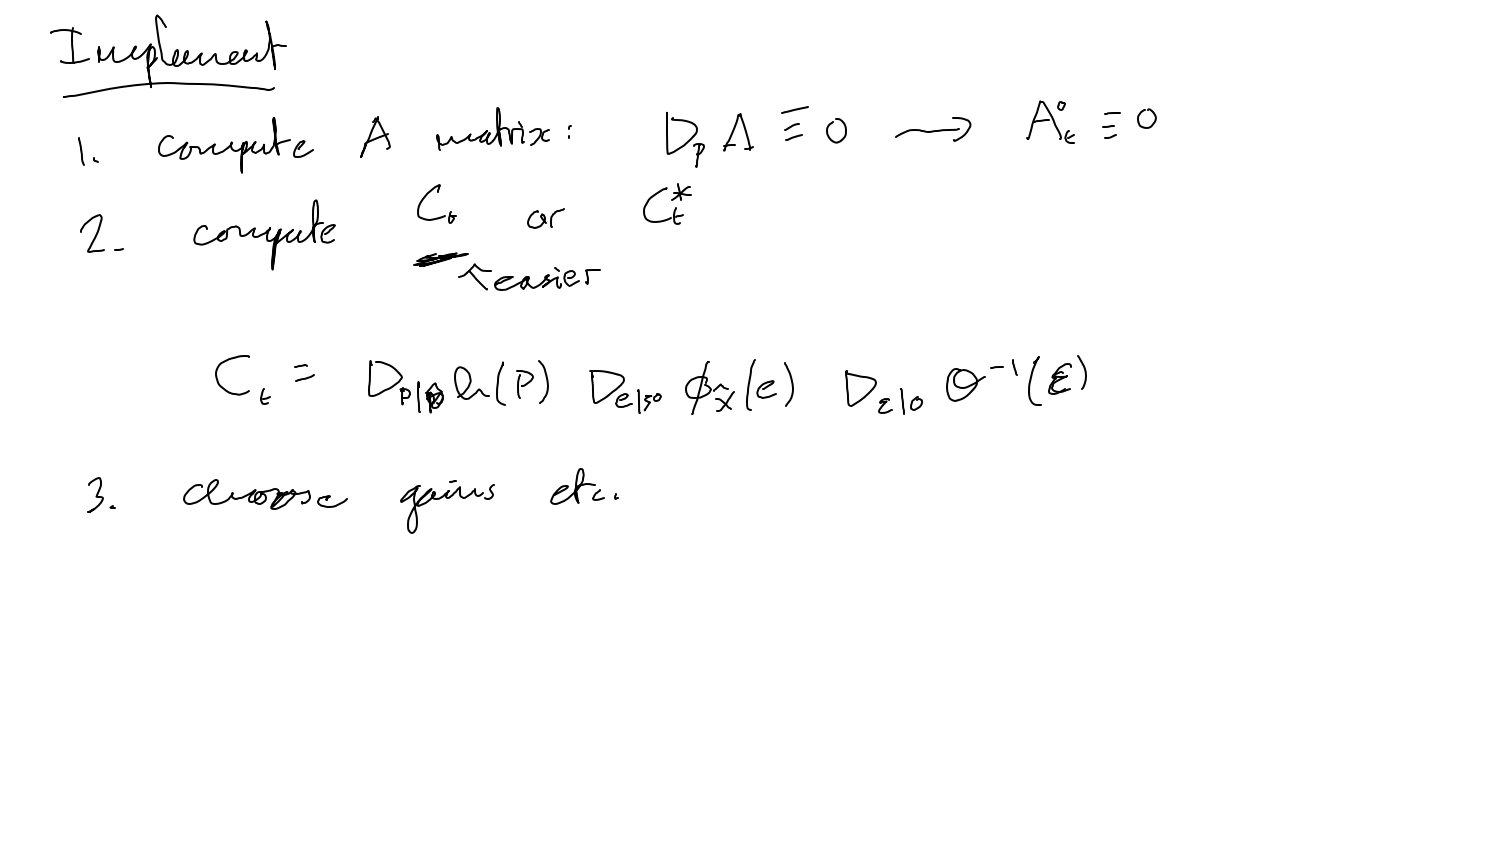 Implement
1. compute A matrix: D_p Λ ≡ 0 → A°_t ≡ 0
2. compute C_t or C_t^*
↑ easier
C_t = D_{p|p̂} h(p) D_{e|ξ°} ϕ_{x̂}(e) D_{ε|0} ϑ^{-1}(ε)
3. choose gains etc.